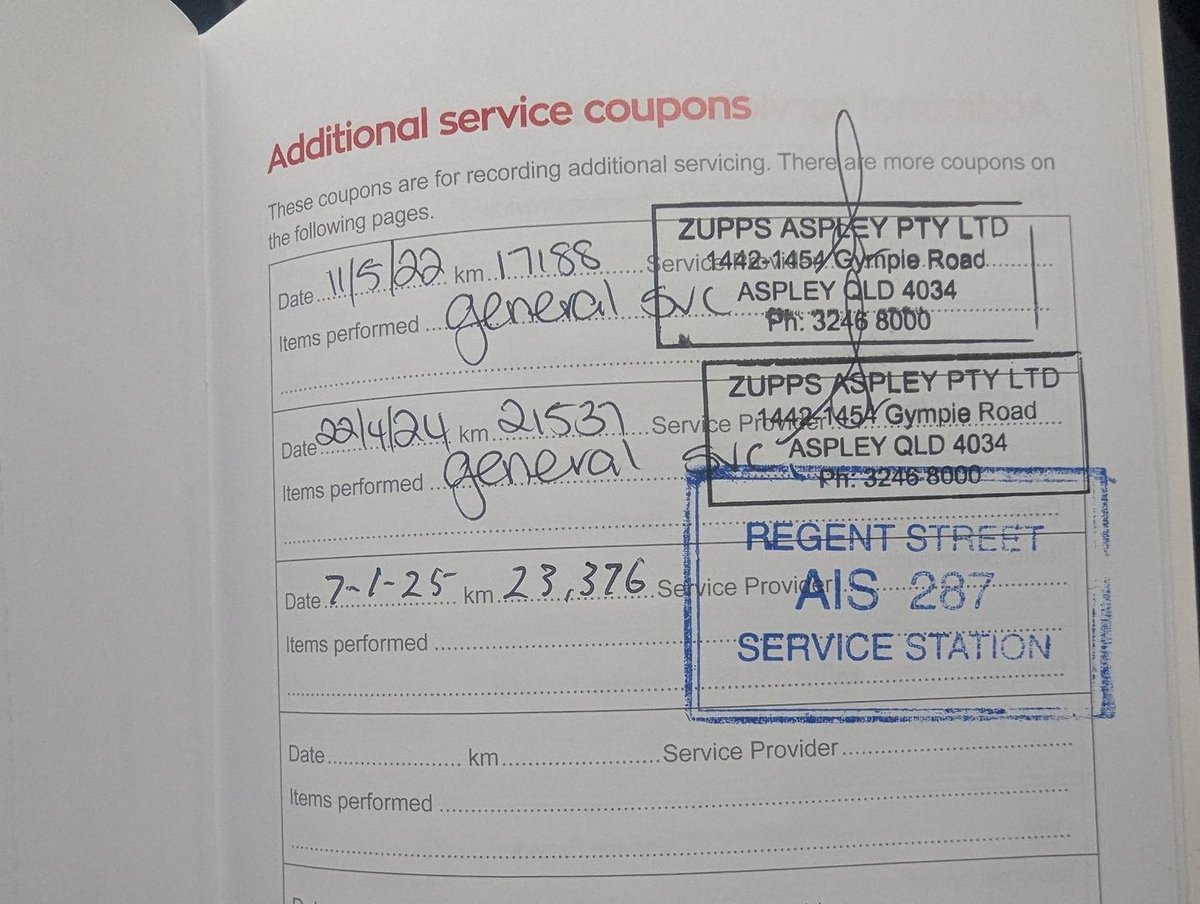 Additional service coupons
These coupons are for recording additional servicing. There are more coupons on
the following pages.
Date 11/5/22 km 17188 Service Provider
Items performed general svc
ZUPPS ASPLEY PTY LTD
1442-1454 Gympie Road
ASPLEY QLD 4034
Ph: 3246 8000
Date 22/4/24 km 21537 Service Provider
Items performed general svc
ZUPPS ASPLEY PTY LTD
1442-1454 Gympie Road
ASPLEY QLD 4034
Ph: 3246 8000
Date 7-1-25 km 23,376 Service Provider
Items performed
REGENT STREET
AIS 287
SERVICE STATION
Date km Service Provider
Items performed